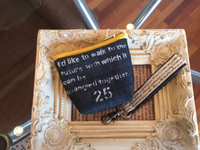 I'd like to walk to the
future with which it
can be
changed together
25